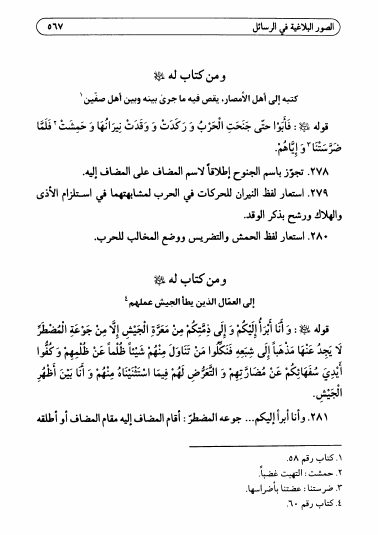 الصور البلاغية في الرسائل ٥٦٧
ومن كتاب له ﷺ
كتبه إلى أهل الأمصار، يقص فيه ما جرىٰ بينه وبين أهل صفّين١
قوله ﷺ : فَأَبَوْا حتّى جَنَحَتِ الْحَرْبُ وَ رَكَدَتْ وَ وَقَدَتْ نِيرَانُهَا وَ حَمِشَتْ٢ فَلَمَّا
ضَرَّسَتْنَا٣ وَ إِيَّاهُمْ.
٢٧٨. تجوّز باسم الجنوح إطلاقاً لاسم المضاف على المضاف إليه.
٢٧٩. استعار لفظ النيران للحركات في الحرب لمشابهتهما في استلزام الأذى
والهلاك ورشح بذكر الوقد.
٢٨٠. استعار لفظ الحمش والتضريس ووضع المخالب للحرب.
ومن كتاب له ﷺ
إلى العمّال الذين يطأ الجيش عملهم٤
قوله ﷺ : وَ أَنَا أَبْرَأُ إِلَيْكُمْ وَ إِلَى ذِمَّتِكُمْ مِنْ مَعَرَّةِ الْجَيْشِ إِلَّا مِنْ جَوْعَةِ الْمُضْطَرِّ
لَا يَجِدُ عَنْهَا مَذْهَباً إِلَى شِبَعِهِ فَنَكِّلُوا مَنْ تَنَاوَلَ مِنْهُمْ شَيْئاً ظُلْماً عَنْ ظُلْمِهِمْ وَ كُفُّوا
أَيْدِيَ سُفَهَائِكُمْ عَنْ مُضَارَّتِهِمْ وَ التَّعَرُّضِ لَهُمْ فِيمَا اسْتَثْنَيْنَاهُ مِنْهُمْ وَ أَنَا بَيْنَ أَظْهُرِ
الْجَيْشِ.
٢٨١. وأنا أبرأ إليكم... جوعه المضطرّ : أقام المضاف إليه مقام المضاف أو أطلقه
١. كتاب رقم ٥٨.
٢. حمشت : التهبت غضباً.
٣. ضرستنا : عضتنا بأضراسها.
٤. كتاب رقم ٦٠.